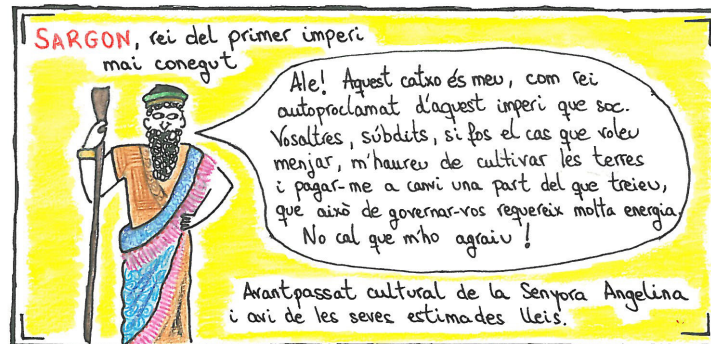 SARGON, rei del primer imperi
mai conegut
Ale! Aquest catxo és meu, com rei
autoproclamat d'aquest imperi que soc.
Vosaltres, súbdits, si fos el cas que voleu
menjar, m'haureu de cultivar les terres
i pagar-me a canvi una part del que treieu,
que això de governar-vos requereix molta energia.
No cal que m'ho agraiu!
Avantpassat cultural de la Senyora Angelina
i avi de les seves estimades lleis.